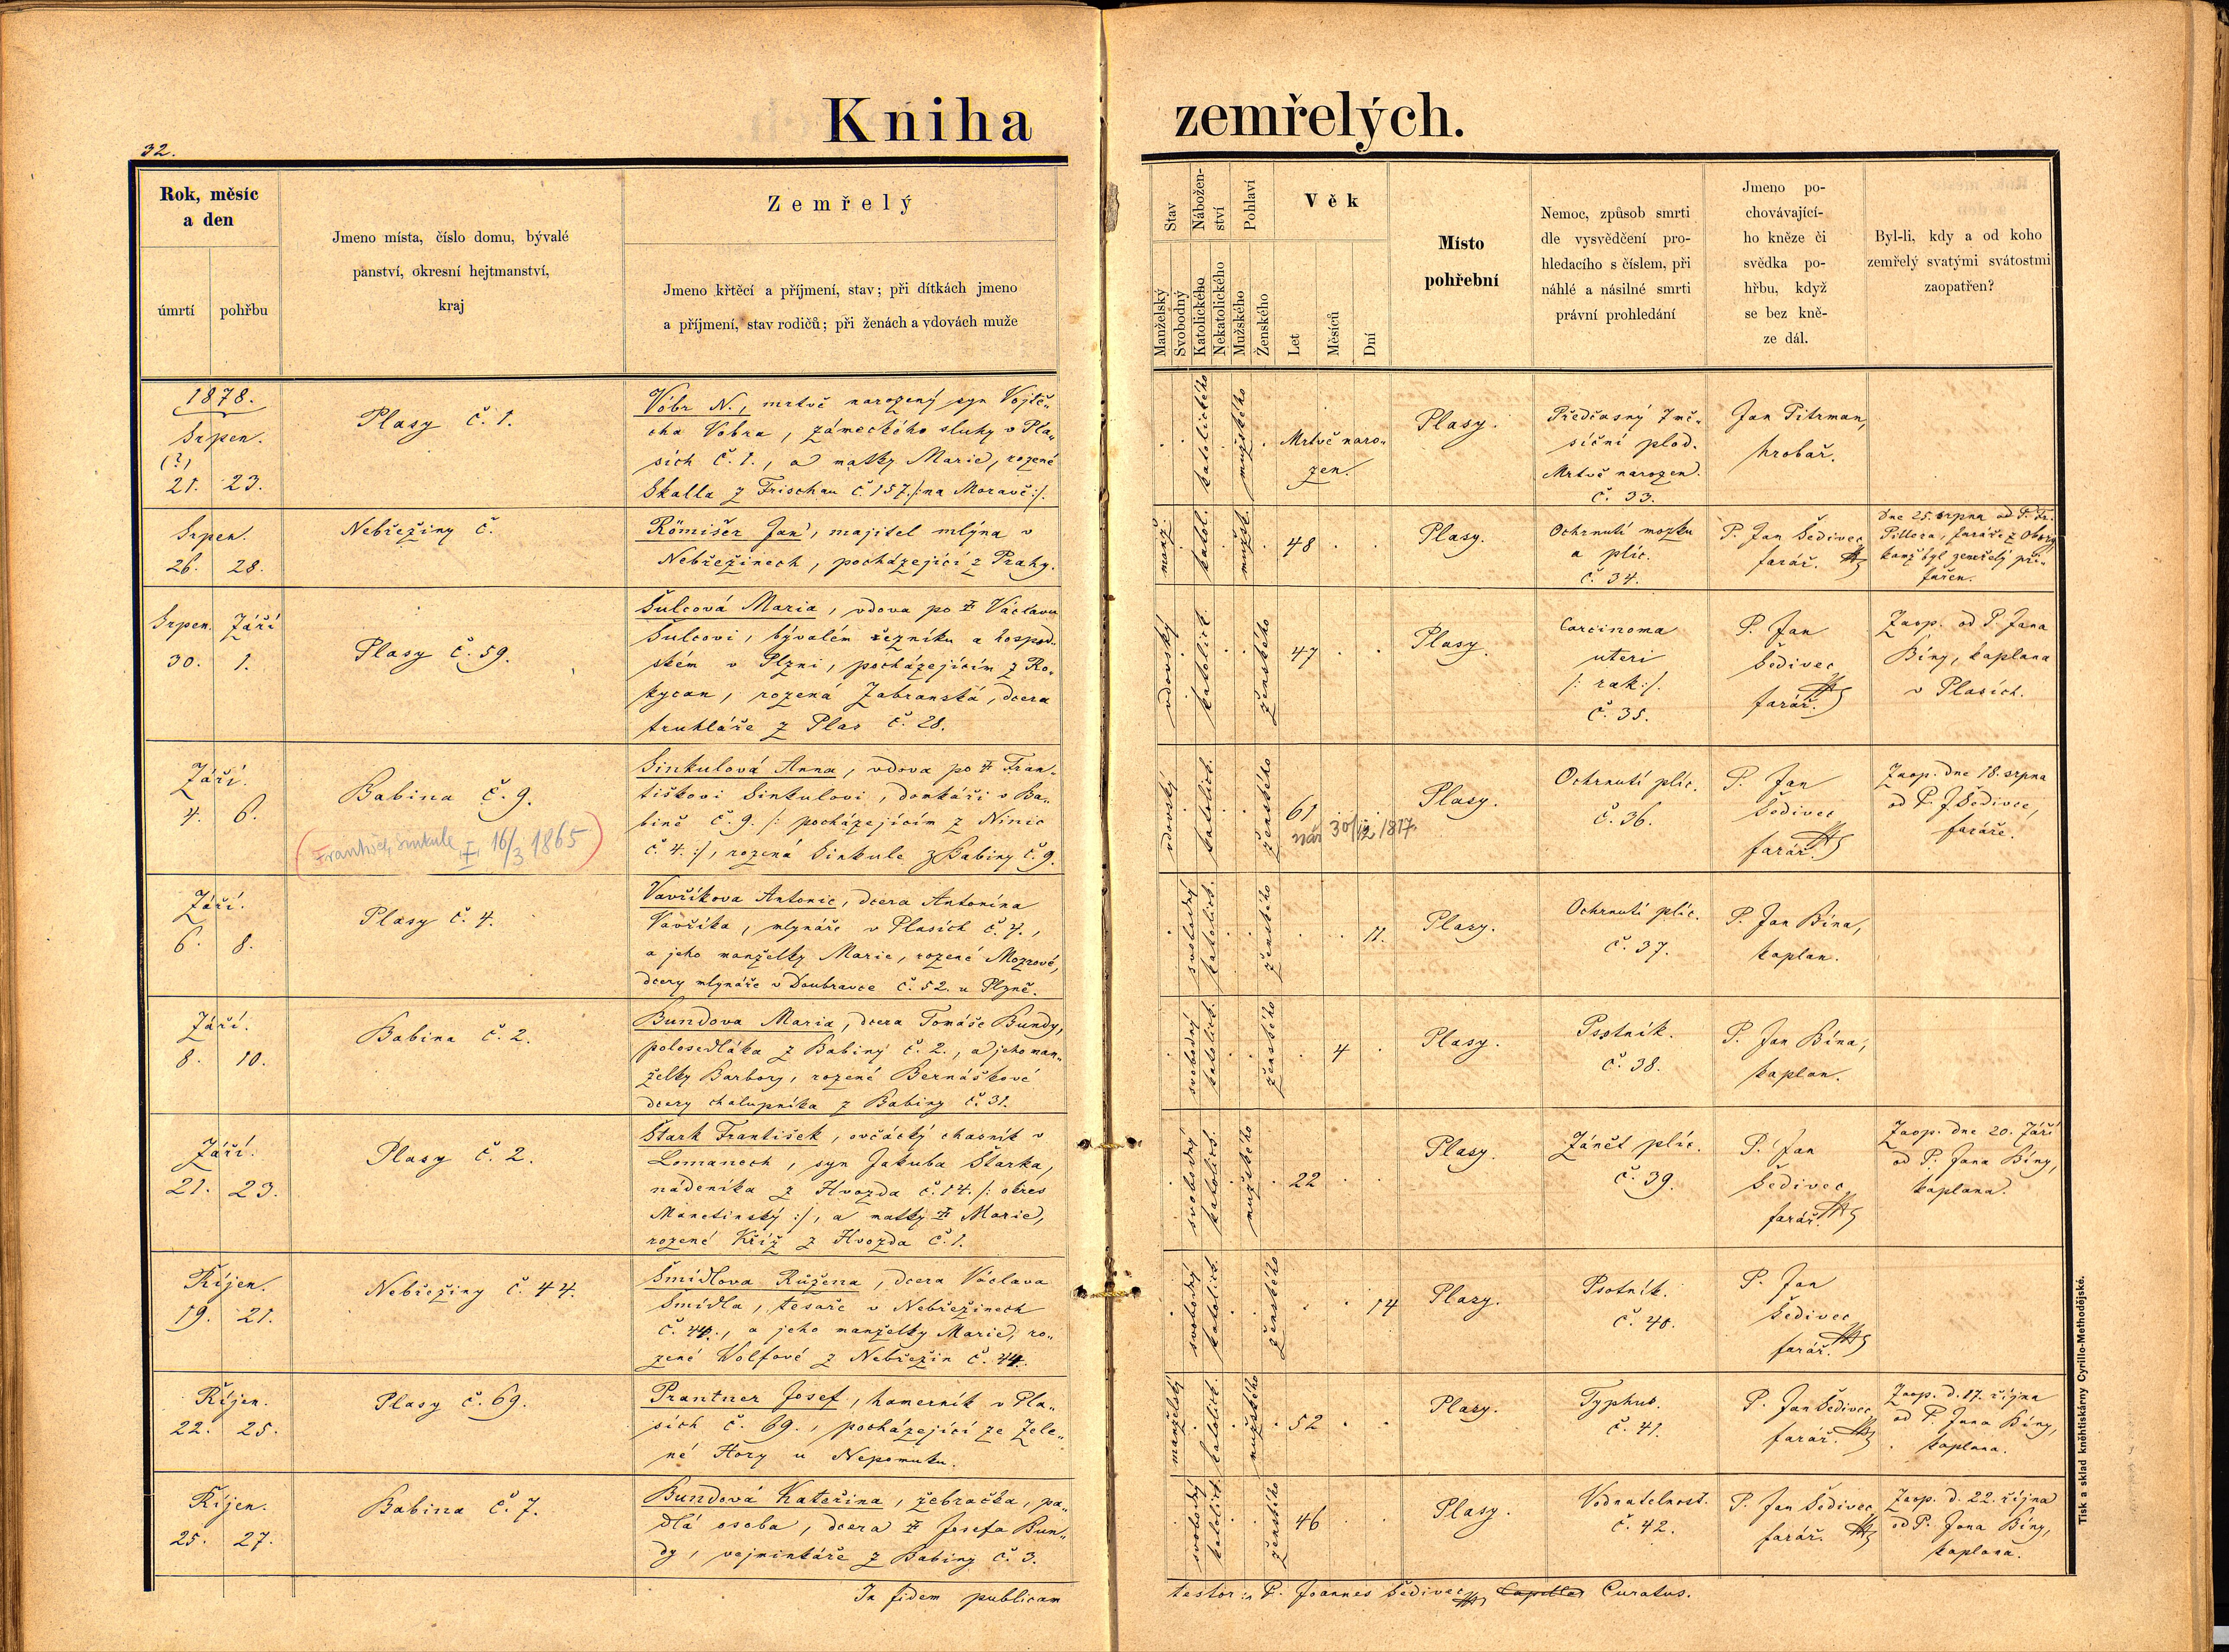 Kniha zemřelých.
32.
Rok, měsíc
a den
úmrtí
pohřbu
Jmeno místa, číslo domu, bývalé
panství, okresní hejtmanství,
kraj
Zemřelý
Jmeno křtěcí a příjmení, stav; při dítkách jmeno
a příjmení, stav rodičů; při ženách a vdovách muže
Stav
Manželský
Svobodný
Nábožen-
ství
Katolického
Nekatolického
Pohlaví
Mužského
Ženského
Věk
Let
Měsíců
Dní
Místo
pohřební
Nemoc, způsob smrti
dle vysvědčení pro-
hledacího s číslem, při
náhlé a násilné smrti
právní prohledání
Jmeno po-
chovávající-
ho kněze či
svědka po-
hřbu, když
se bez kně-
ze dál.
Byl-li, kdy a od koho
zemřelý svatými svátostmi
zaopatřen?
1878.
Srpen.
(?)
21. 23.
Plasy č. 1.
Vobr N., mrtvě narozený syn Vojtě„
cha Vobra, zámeckého sluhy v Pla„
sích č. 1., a matky Marie, rozené
Skalla z Frischau č. 157. /: na Moravě :/.
katolického
mužského
Mrtvě naro„
zen.
Plasy.
Předčasný 7 mě„
síční plod.
Mrtvě narozen.
č. 33.
Jan Pitrman,
hrobař.
Srpen.
26. 28.
Nebřeziny č.
Römišer Jan, majitel mlýna v
Nebřezinech, pocházející z Prahy.
manž.
katol.
mužsk.
48
Plasy.
Ochrnutí mozku
a plic.
č. 34.
P. Jan Šedivec
farář.
Dne 25. srpna od P. Fr.
Pillera, faráře z Obory
kamž byl zemřelý při„
fařen.
Srpen. Září
30. 1.
Plasy č. 59.
Šulcová Maria, vdova po † Václavu
Šulcovi, bývalém řezníku a hospod„
ském v Plzni, pocházejícím z Ro„
kycan, rozená Zabranská, dcera
truhláře z Plas č. 28.
vdovský
katolick.
ženského
47
Plasy.
Carcinoma
uteri
/: rak :/.
č. 35.
P. Jan
Šedivec
farář.
Zaop. od P. Jana
Bíny, kaplana
v Plasích.
Září.
4. 6.
Babina č. 9.
(František Sinkule I, 16/3 1865)
Sinkulová Anna, vdova po † Fran„
tiškovi Sinkulovi, domkáři v Ba„
bině č. 9. /: pocházejícím z Ninic
č. 4. :/, rozená Sinkule z Babiny č. 9.
vdovský
katolick.
ženského
61
nar. 30/12 1817.
Plasy.
Ochrnutí plic.
č. 36.
P. Jan
Šedivec
farář.
Zaop. dne 18. srpna
od P. J. Šedivce,
faráře.
Září.
6. 8.
Plasy č. 4.
Vavříkova Antonie, dcera Antonína
Vavříka, mlynáře v Plasích č. 4.,
a jeho manželky Marie, rozené Mozrové,
dcery mlynáře v Doubravce č. 52. u Plzně.
svobodný
katolick.
ženského
11.
Plasy.
Ochrnutí plic.
č. 37.
P. Jan Bína,
kaplan.
Září.
8. 10.
Babina č. 2.
Bundova Maria, dcera Tomáše Bundy,
polosedláka z Babiny č. 2., a jeho man„
želky Barbory, rozené Bernáškové
dcery chalupníka z Babiny č. 31.
svobodný
katolick.
ženského
4
Plasy.
Psotník.
č. 38.
P. Jan Bína,
kaplan.
Září.
21. 23.
Plasy č. 2.
Štark František, ovčácký chasník v
Lomanech, syn Jakuba Štarka,
nádeníka z Hvozda č. 14. /: okres
Manetinský :/, a matky † Marie,
rozené Kříž z Hvozda č. 1.
svobodný
katolick.
mužského
22
Plasy.
Zánět plic.
č. 39.
P. Jan
Šedivec
farář.
Zaop. dne 20. Září
od P. Jana Bíny,
kaplana.
Říjen.
19. 21.
Nebřeziny č. 44.
Šmídlova Růžena, dcera Václava
Šmídla, tesaře v Nebřezinech
č. 44., a jeho manželky Marie, ro„
zené Wolfové z Nebřezin č. 44.
svobodný
katolick.
ženského
14
Plasy.
Psotník.
č. 40.
P. Jan
Šedivec
farář.
Říjen.
22. 25.
Plasy č. 69.
Prantner Josef, hamerník v Pla„
sích č. 69., pocházející ze Zele„
né Hory u Nepomuku.
manželský
katolick.
mužského
52
Plasy.
Typhus.
č. 41.
P. Jan Šedivec
farář.
Zaop. d. 17. října
od P. Jana Bíny,
kaplana.
Říjen.
25. 27.
Babina č. 7.
Bundová Kateřina, žebračka, pa„
dlá osoba, dcera † Josefa Bun„
dy, vejminkáře z Babiny č. 3.
svobodný
katolick.
ženského
46
Plasy.
Vodnatelnost.
č. 42.
P. Jan Šedivec
farář.
Zaop. d. 22. října
od P. Jana Bíny,
kaplana.
In fidem publicam
testor: P. Joannes Šedivec Curatus.
Tisk a sklad kněhtiskárny Cyrillo-Methodějské.